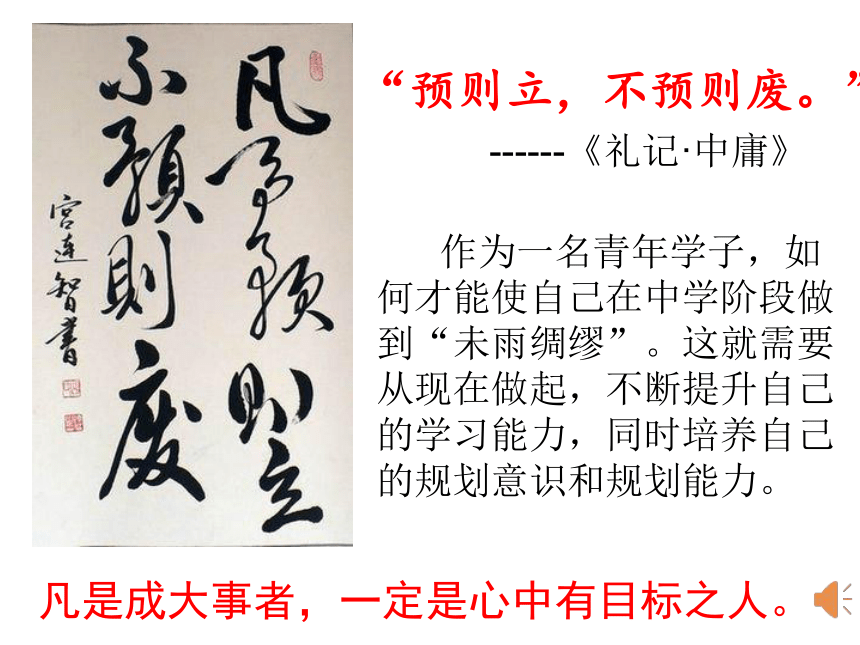 凡事預則立
不預則廢
宫连智書
“预则立，不预则废。”
------《礼记·中庸》
作为一名青年学子，如
何才能使自己在中学阶段做
到“未雨绸缪”。这就需要
从现在做起，不断提升自己
的学习能力，同时培养自己
的规划意识和规划能力。
凡是成大事者，一定是心中有目标之人。